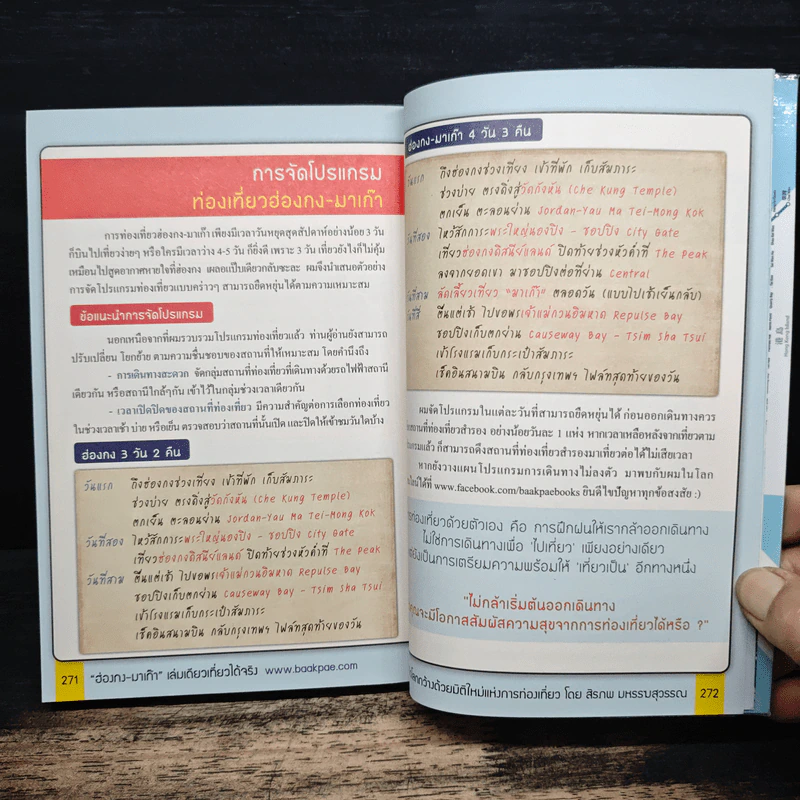 การจัดโปรแกรม
ท่องเที่ยวฮ่องกง-มาเก๊า
การท่องเที่ยวฮ่องกง-มาเก๊า เพียงมีเวลาวันหยุดสุดสัปดาห์อย่างน้อย 3 วัน
ก็บินไปเที่ยวง่ายๆ หรือใครมีเวลาว่าง 4-5 วัน ก็ยิ่งดี เพราะ 3 วัน เที่ยวยังไงก็ไม่คุ้ม
เหมือนไปสูดอากาศหายใจที่ฮ่องกง เผลอแป๊บเดียวกลับซะละ ผมจึงนำเสนอตัวอย่าง
การจัดโปรแกรมท่องเที่ยวแบบคร่าวๆ สามารถยืดหยุ่นได้ตามความเหมาะสม
ข้อแนะนำการจัดโปรแกรม
นอกเหนือจากที่ผมรวบรวมโปรแกรมท่องเที่ยวแล้ว ท่านผู้อ่านยังสามารถ
ปรับเปลี่ยน โยกย้าย ตามความชื่นชอบของสถานที่ให้เหมาะสม โดยคำนึงถึง
- การเดินทางสะดวก จัดกลุ่มสถานที่เที่ยวที่เดินทางด้วยรถไฟฟ้าสถานี
เดียวกัน หรือสถานีใกล้ๆกัน เข้าไว้ในกลุ่มช่วงเวลาเดียวกัน
- เวลาเปิดปิดของสถานที่ท่องเที่ยว มีความสำคัญต่อการเลือกท่องเที่ยว
ในช่วงเวลาเช้า บ่าย หรือเย็น ตรวจสอบว่าสถานที่นั้นเปิด และปิดให้เข้าชมวันใดบ้าง
ฮ่องกง 3 วัน 2 คืน
วันแรก ถึงฮ่องกงช่วงเที่ยง เข้าที่พัก เก็บสัมภาระ
ช่วงบ่าย ตรงดิ่งสู่วัดกังหัน (Che Kung Temple)
ตกเย็น ตะลอนย่าน Jordan-Yau Ma Tei-Mong Kok
วันที่สอง ไหว้สักการะพระใหญ่นองปิง - ชอปปิง City Gate
เที่ยวฮ่องกงดิสนีย์แลนด์ ปิดท้ายช่วงหัวค่ำที่ The Peak
วันที่สาม ตื่นแต่เช้า ไปขอพรเจ้าแม่กวนอิมหาด Repulse Bay
ชอปปิงเก็บตกย่าน Causeway Bay - Tsim Sha Tsui
เข้าโรงแรมเก็บกระเป๋าสัมภาระ
เช็คอินสนามบิน กลับกรุงเทพฯ ไฟล์ทสุดท้ายของวัน
271 "ฮ่องกง-มาเก๊า" เล่มเดียวเที่ยวได้จริง www.baakpae.com
ฮ่องกง-มาเก๊า 4 วัน 3 คืน
วันแรก ถึงฮ่องกงช่วงเที่ยง เข้าที่พัก เก็บสัมภาระ
ช่วงบ่าย ตรงดิ่งสู่วัดกังหัน (Che Kung Temple)
ตกเย็น ตะลอนย่าน Jordan-Yau Ma Tei-Mong Kok
วันที่สอง ไหว้สักการะพระใหญ่นองปิง - ชอปปิง City Gate
เที่ยวฮ่องกงดิสนีย์แลนด์ ปิดท้ายช่วงหัวค่ำที่ The Peak
ลงจากยอดเขา มาชอปปิงต่อที่ย่าน Central
วันที่สาม ลัดเลี้ยวเที่ยว "มาเก๊า" ตลอดวัน (แบบไปเช้าเย็นกลับ)
วันที่สี่ ตื่นแต่เช้า ไปขอพรเจ้าแม่กวนอิมหาด Repulse Bay
ชอปปิงเก็บตกย่าน Causeway Bay - Tsim Sha Tsui
เข้าโรงแรมเก็บกระเป๋าสัมภาระ
เช็คอินสนามบิน กลับกรุงเทพฯ ไฟล์ทสุดท้ายของวัน
ผมจัดโปรแกรมในแต่ละวันที่สามารถยืดหยุ่นได้ ก่อนออกเดินทางควร
สถานที่ท่องเที่ยวสำรอง อย่างน้อยวันละ 1 แห่ง หากเวลาเหลือหลังจากเที่ยวตาม
โปรแกรมแล้ว ก็สามารถดึงสถานที่ท่องเที่ยวสำรองมาเที่ยวต่อได้ไม่เสียเวลา
หากยังวางแผนโปรแกรมการเดินทางไม่ลงตัว มาพบกับผมในโลก
ได้ที่ www.facebook.com/baakpaebooks ยินดีไขปัญหาทุกข้อสงสัย :)
ท่องเที่ยวด้วยตัวเอง คือ การฝึกฝนให้เรากล้าออกเดินทาง
ไม่ใช่การเดินทางเพื่อ 'ไปเที่ยว' เพียงอย่างเดียว
ยังเป็นการเตรียมความพร้อมให้ 'เที่ยวเป็น' อีกทางหนึ่ง
"ไม่กล้าเริ่มต้นออกเดินทาง
จะมีโอกาสสัมผัสความสุขจากการท่องเที่ยวได้หรือ ?"
โลกกว้างด้วยมิติใหม่แห่งการท่องเที่ยว โดย สิรภพ มหรรณสุวรรณ 272